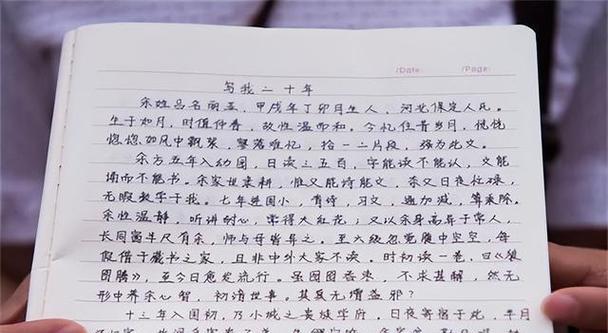 /Date: /Page:
写我二十年
余姓吕名丽孟，甲戌年丁卯月生人，河北保定人氏。
生于如月，时值仲春，故性温而和。今忆住昔岁月，恍恍
惚惚如风中飘絮，繁落难忆，拾一二片段，强为此文。
余方五年入幼园，日读三五页，字能读不能认，文能
诵而不能书。余家世素耕，惟父能诗能文，奈父日夜忙碌，
无暇教字于我。七年进国小，看诗，习文，通加减，算乘除。
余性温静，听讲耐心，常得大红花；又以余身高异于常人，
长周围半尺有余，师与母皆异之。至六级忽觉腹中空空，每
假借于藏书之家，且非中外大家不读。时初读一卷，曰《
图腾》，至今日愈发流行。虽囫图吞枣，不求甚解，然无
形中养余心智，初消世事。其
十三年入国初，乃小城之
日夜寄宿于此，